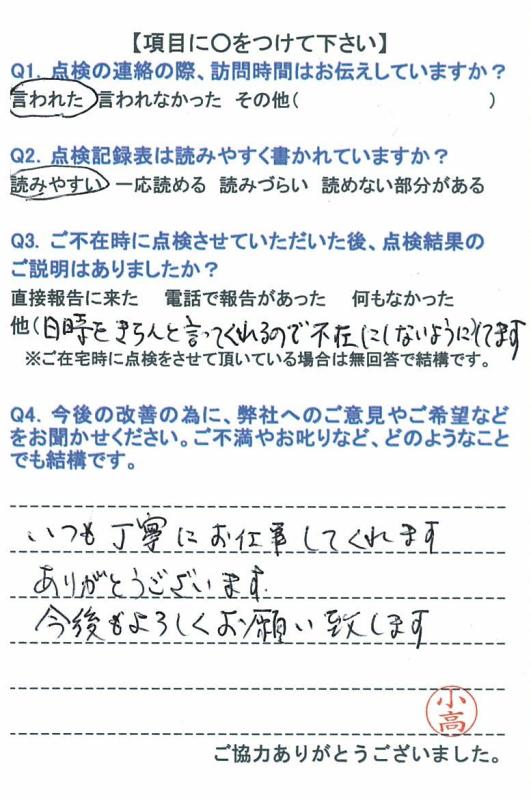 【項目に〇をつけて下さい】
Q1. 点検の連絡の際、訪問時間はお伝えしていますか？
言われた 言われなかった その他(　　　　　　　　　)
Q2. 点検記録表は読みやすく書かれていますか？
読みやすい 一応読める 読みづらい 読めない部分がある
Q3. ご不在時に点検させていただいた後、点検結果の
ご説明はありましたか？
直接報告に来た 電話で報告があった 何もなかった
他(日時をきちんと言ってくれるので不在にしないようにしてます
※ご在宅時に点検をさせて頂いている場合は無回答で結構です。
Q4. 今後の改善の為に、弊社へのご意見やご希望など
をお聞かせください。ご不満やお叱りなど、どのようなこと
でも結構です。
いつも丁寧にお仕事してくれます
ありがとうございます.
今後もよろしくお願い致します
小高
ご協力ありがとうございました。